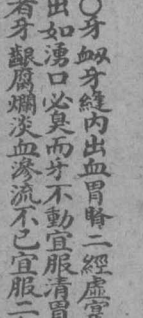 ○牙衂牙縫內出血胃腎二經虛實
出如湧口必臭而牙不動宜服清胃
者牙齦腐爛淡血滲流不已宜服二